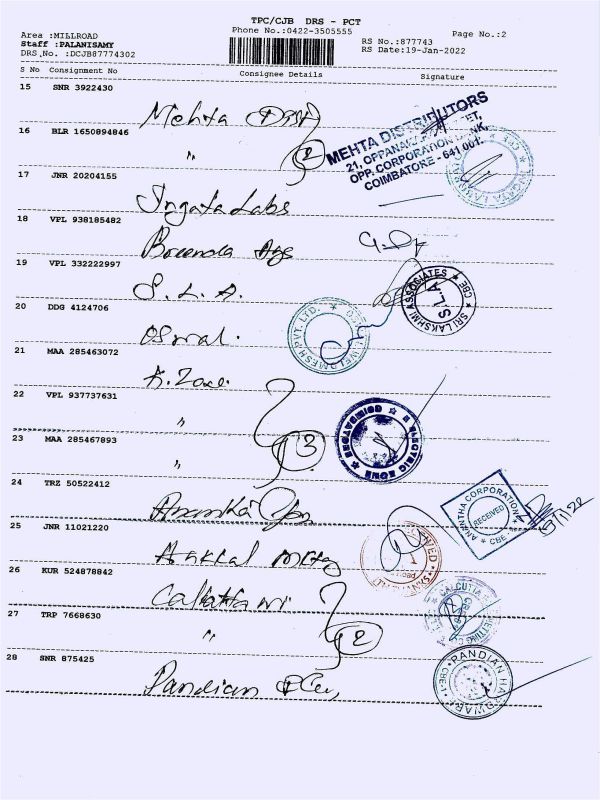 TPC/CJB DRS - PCT
Area :MILLROAD
Phone No.:0422-3505555
Page No.:2
Staff :PALANISAMY
RS No.:877743
DRS No. :DCJB87774302
RS Date:19-Jan-2022
S No Consignment No Consignee Details Signature
15 SNR 3922430
Mehta
MEHTA DISTRIBUTORS
16 BLR 1650894846
"
2
21, OPPANAKARA STREET,
OPP. CORPORATION BANK,
COIMBATORE - 641 001.
17 JNR 20204155
Ingata Labs
18 VPL 938185482
Ags
19 VPL 332222997
S.L.A.
SRI LAKSHMI ASSOCIATES ★ CBE ★
S.L.A
20 DDG 4124706
Oswal.
WELDMESH PVT. LTD.
21 MAA 285463072
A. Zone
22 VPL 937737631
"
3
ELECTRIC ZONE ★ COIMBATORE ★
23 MAA 285467893
"
24 TRZ 50522412
ANANTHA CORPORATION
RECEIVED
★ CBE ★
25 JNR 11021220
THANKS
26 KUR 524878842
CALCUTTA
27 TRP 7668630
"
2
28 SNR 875425
Pandian
PANDIAN HARDWARE
CBE-1